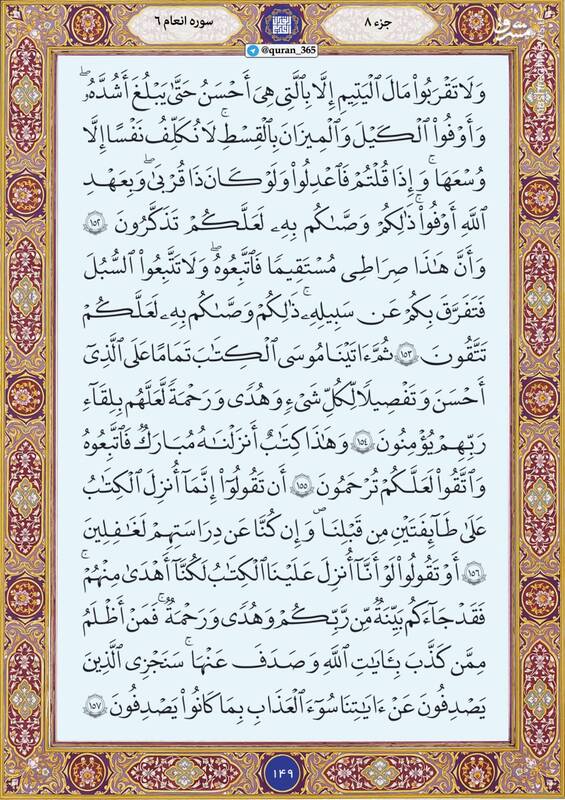 جزء ۸
سوره انعام ۶
@quran_365
وَلَا تَقْرَبُوا۟ مَالَ ٱلْيَتِيمِ إِلَّا بِٱلَّتِى هِىَ أَحْسَنُ حَتَّىٰ يَبْلُغَ أَشُدَّهُۥۖ
وَأَوْفُوا۟ ٱلْكَيْلَ وَٱلْمِيزَانَ بِٱلْقِسْطِۖ لَا نُكَلِّفُ نَفْسًا إِلَّا
وُسْعَهَاۖ وَإِذَا قُلْتُمْ فَٱعْدِلُوا۟ وَلَوْ كَانَ ذَا قُرْبَىٰۖ وَبِعَهْدِ
ٱللَّهِ أَوْفُوا۟ۚ ذَٰلِكُمْ وَصَّىٰكُم بِهِۦ لَعَلَّكُمْ تَذَكَّرُونَ ۱۵۲
وَأَنَّ هَٰذَا صِرَٰطِى مُسْتَقِيمًا فَٱتَّبِعُوهُۖ وَلَا تَتَّبِعُوا۟ ٱلسُّبُلَ
فَتَفَرَّقَ بِكُمْ عَن سَبِيلِهِۦۚ ذَٰلِكُمْ وَصَّىٰكُم بِهِۦ لَعَلَّكُمْ
تَتَّقُونَ ۱۵۳ ثُمَّ ءَاتَيْنَا مُوسَى ٱلْكِتَٰبَ تَمَامًا عَلَى ٱلَّذِىٓ
أَحْسَنَ وَتَفْصِيلًا لِّكُلِّ شَىْءٍ وَهُدًى وَرَحْمَةً لَّعَلَّهُم بِلِقَآءِ
رَبِّهِمْ يُؤْمِنُونَ ۱۵۴ وَهَٰذَا كِتَٰبٌ أَنزَلْنَٰهُ مُبَارَكٌ فَٱتَّبِعُوهُ
وَٱتَّقُوا۟ لَعَلَّكُمْ تُرْحَمُونَ ۱۵۵ أَن تَقُولُوٓا۟ إِنَّمَآ أُنزِلَ ٱلْكِتَٰبُ
عَلَىٰ طَآئِفَتَيْنِ مِن قَبْلِنَا وَإِن كُنَّا عَن دِرَاسَتِهِمْ لَغَٰفِلِينَ
۱۵۶ أَوْ تَقُولُوا۟ لَوْ أَنَّآ أُنزِلَ عَلَيْنَا ٱلْكِتَٰبُ لَكُنَّآ أَهْدَىٰ مِنْهُمْۚ
فَقَدْ جَآءَكُم بَيِّنَةٌ مِّن رَّبِّكُمْ وَهُدًى وَرَحْمَةٌۚ فَمَنْ أَظْلَمُ
مِمَّن كَذَّبَ بِـَٔايَٰتِ ٱللَّهِ وَصَدَفَ عَنْهَاۗ سَنَجْزِى ٱلَّذِينَ
يَصْدِفُونَ عَنْ ءَايَٰتِنَا سُوٓءَ ٱلْعَذَابِ بِمَا كَانُوا۟ يَصْدِفُونَ ۱۵۷
۱۴۹